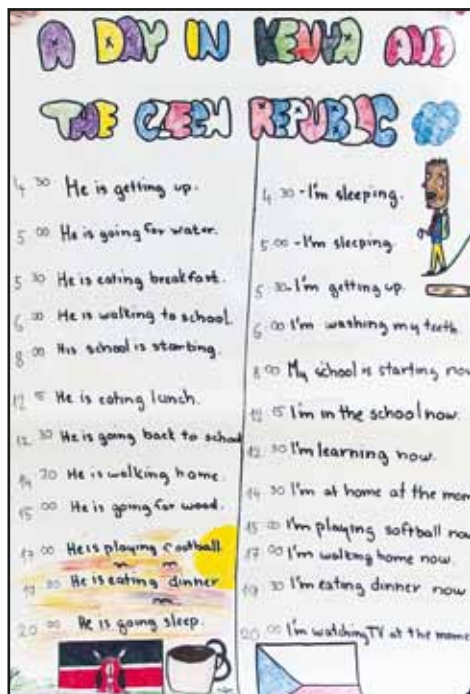 A DAY IN KENYA AND
THE CZECH REPUBLIC
4 30 He is getting up.
5 00 He is going for water.
5 30 He is eating breakfast.
6 00 He is walking to school.
8 00 His school is starting.
12 15 He is eating lunch.
12 30 He is going back to school
14 30 He is walking home.
15 00 He is going for wood.
17 00 He is playing football
19 30 He is eating dinner
20 00 He is going sleep.
4 30 - I'm sleeping.
5 00 - I'm sleeping
5 30 - I'm getting up.
6 00 I'm washing my teeth
8 00 My school is starting now
12 15 I'm in the school now.
12 30 I'm learning now.
14 30 I'm at home at the mom
15 00 I'm playing softball now
17 00 I'm walking home now.
19 30 I'm eating dinner now
20 00 I'm watching TV at the mome